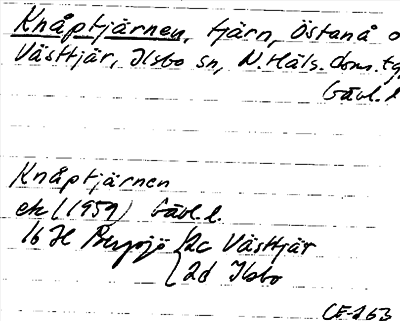 Knåptjärnen, tjärn, Östanå o
Västtjär, Ilsbo sn, N. Häls. doms. tg
Gävl. l.
Knåptjärnen
ek (1959) Gävl. l.
16 H Bergsjö 2c Västtjär
2d Ilsbo